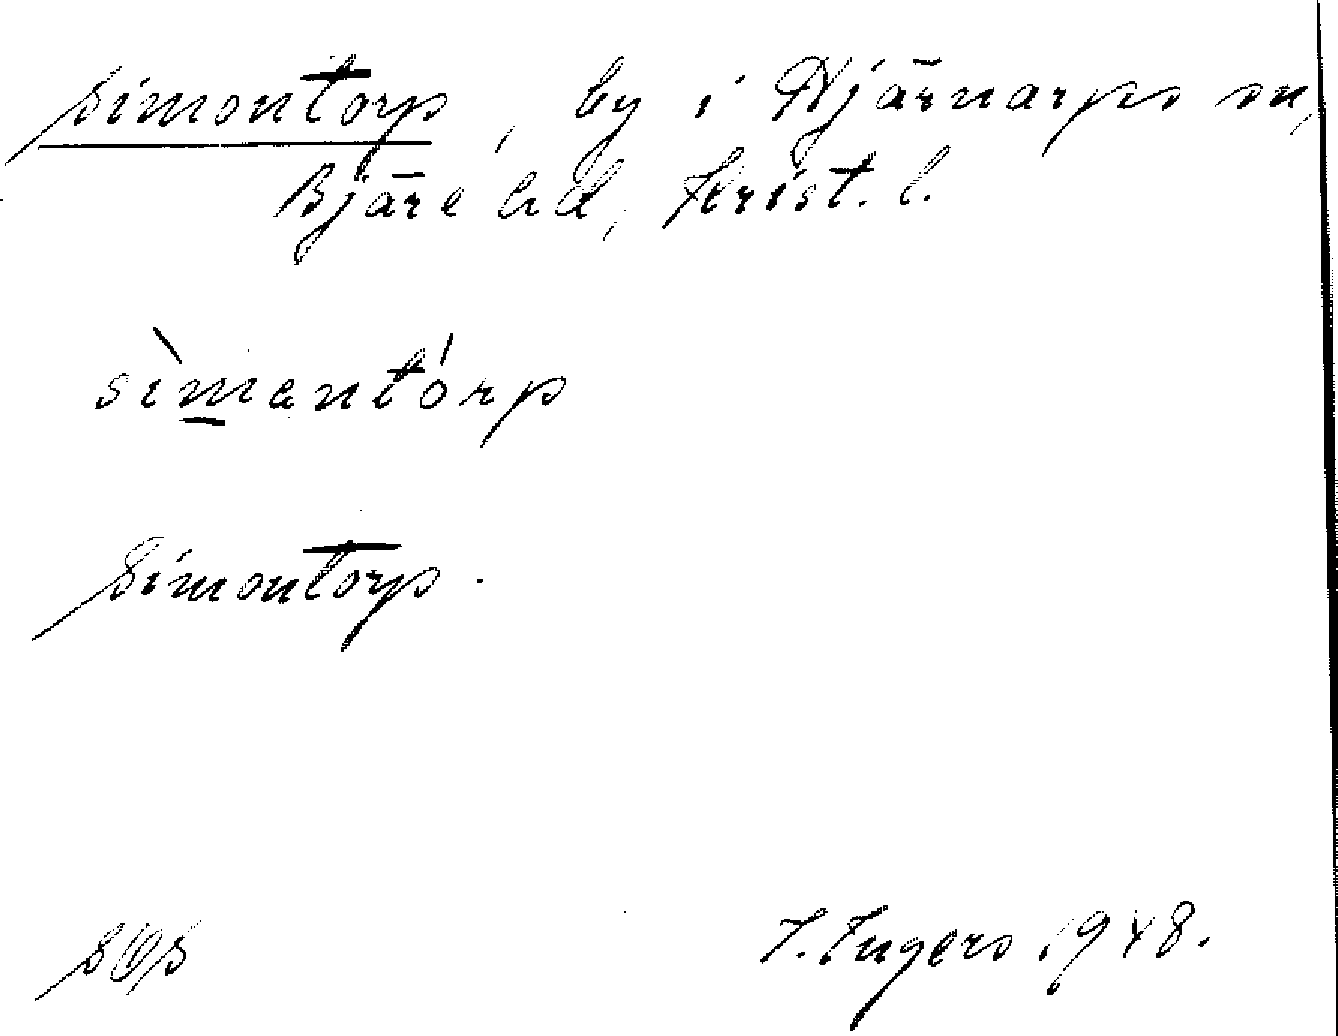 Simontorp, by i Hjärnarps sn,
Bjäre hd, Krist. l.
sìmantórp
Simontorp.
SOS I. Ingers 1948.